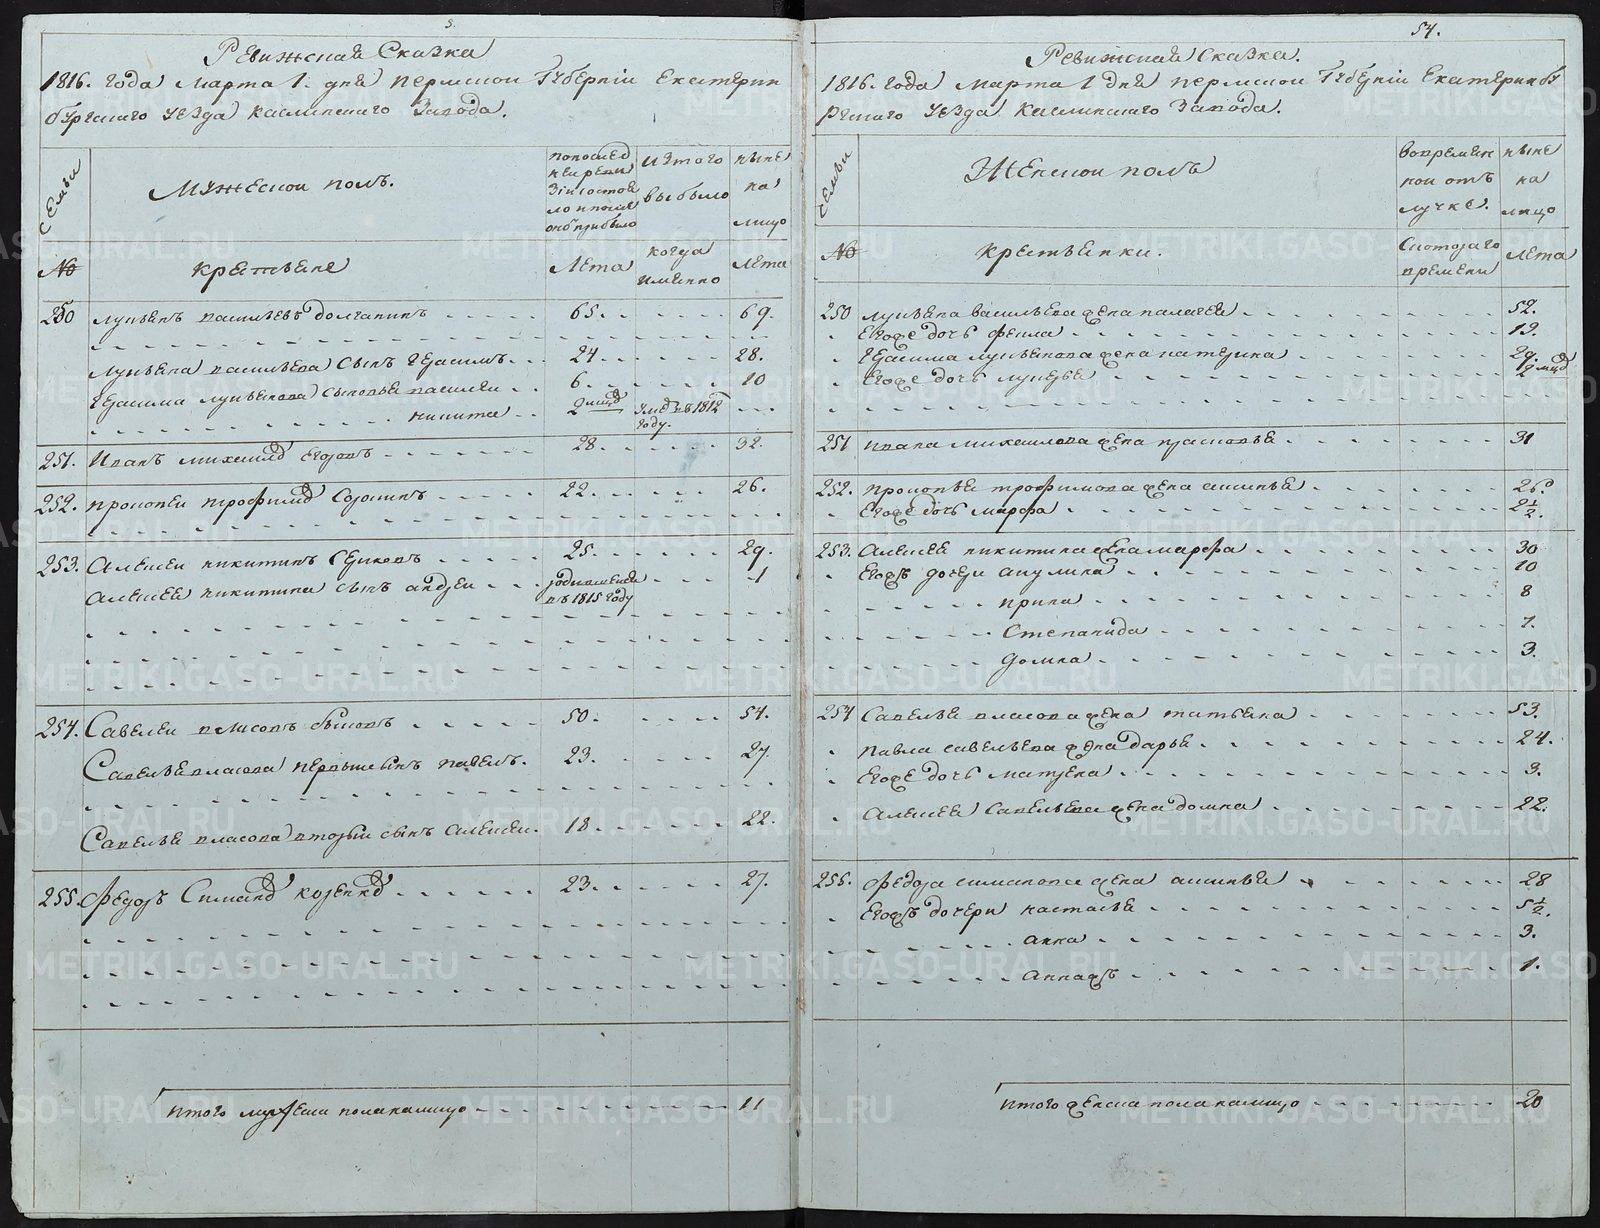 54.
Ревижская Сказка
1816. года Марта 1. дня Пермской Губернiи Екатерин
бургскаго уезда Каслинскаго Завода.
Семьи
Мужескои полъ.
изтого
выбыло
ныне
на
лицо
№
крестьяне
Лета
когда
именно
лета
250 лукьянъ васильевъ долганинъ 65. 69.
лукьяна васильева сынъ Герасимъ 24 28.
Герасима лукьянова сыновья василеи 6. 10
никита 2 мцд умеръ в 1812 году.
251. Иванъ михаилд Егоровъ 28. 32.
252. прокопеи трофимд Сорокинъ 22. 26.
253. Алексеи никитинъ Серковъ 25. 29.
Алексея никитина сынъ андреи родившеися въ 1815 году 1
254. Савелеи власовъ быковъ 50. 54.
Савелья власова первыи сынъ павелъ. 23. 27.
Савелья власова вторыи сынъ Алексеи. 18. 22.
255. Федоръ Симанд 23. 27.
итого мужеска пола налицо 11
Ревижская Сказка.
1816. года Марта 1 дня пермскои Губернiи Екатеринбу
ргскаго уезда Каслинскаго Завода.
Семьи
Женскои полъ
вовремян
нои отъ
лучке.
ныне
на
лицо
№
крестьянки.
Скотораго
времени
лета
250 лукьяна васильева жена палагея 52.
Егоже дочь фекла 19.
Герасима лукьянова жена катерина 29.
Егоже дочь лукерья 2 мцд
251 ивана михаилова жена прасковья 31
252. прокопья трофимова жена аксинья 26.
Егоже дочь марфа 2 1/2.
253. Алексея никитина жена марфа 30
Егожъ дочери акулина 10
ирина 8
Степанида 7.
домна 3.
254 Савелья власова жена татьяна 53.
павла савельева жена дарья 24.
Егоже дочь матрена 3.
Алексея Савельева жена домна 22.
255. Федора симанова жена аксинья 28
Егожъ дочери настасья 5 1/2.
анна 3.
аннажъ 1.
итого женска пола налицо 20